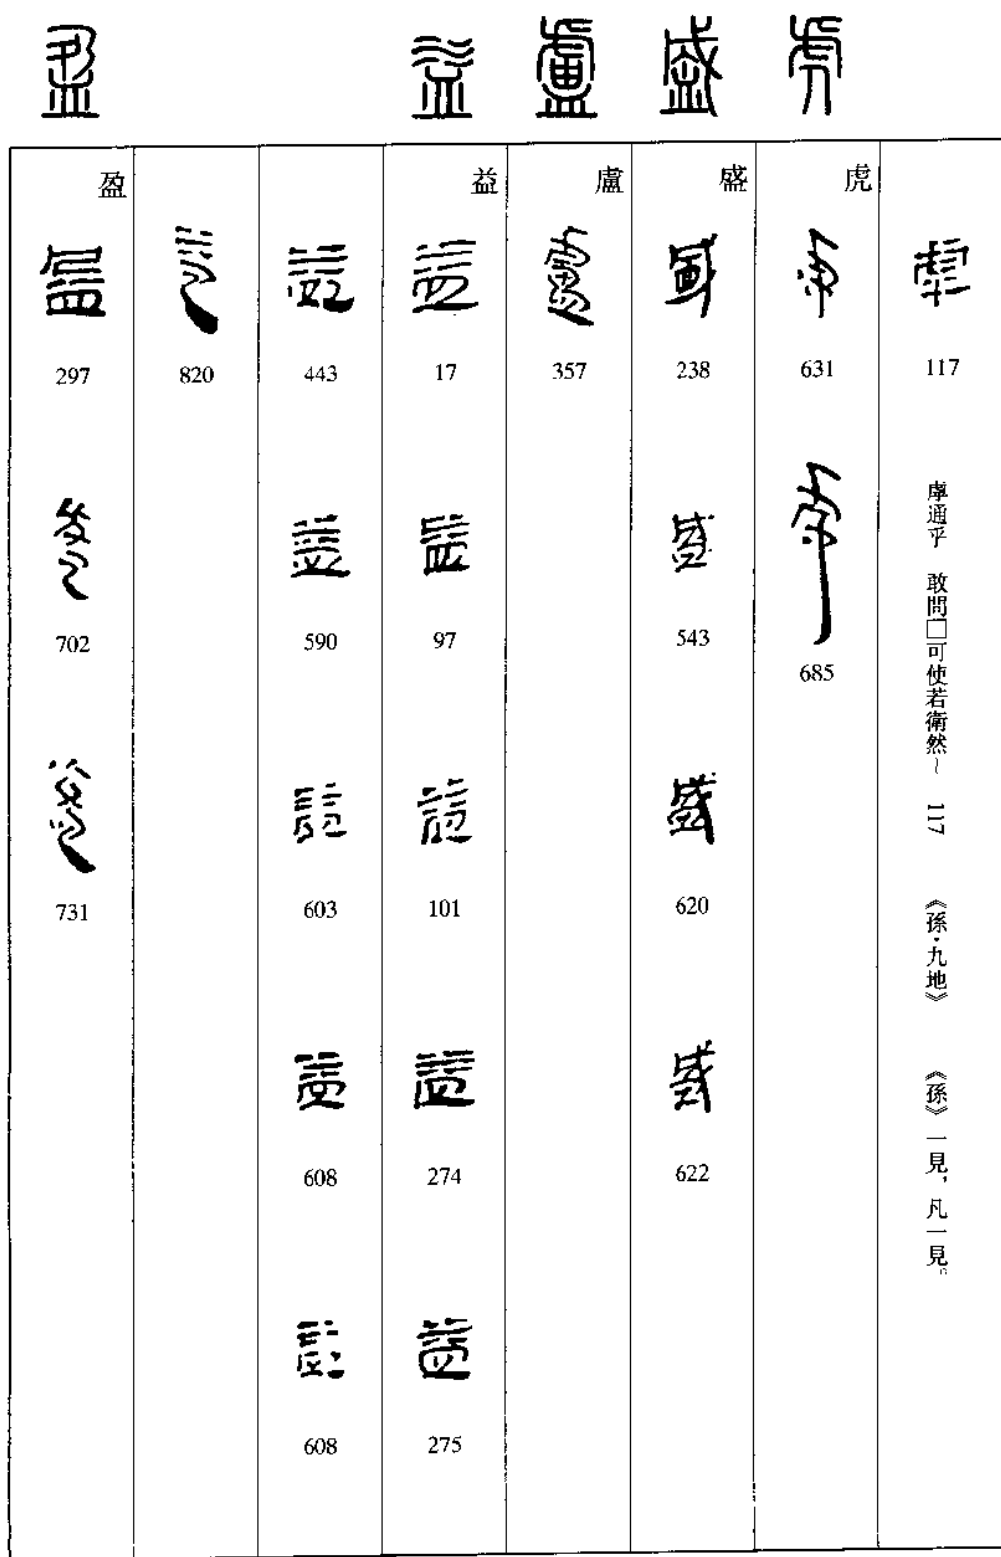 117
虖通乎　敢問□可使若衛然～　117　《孫·九地》　《孫》一見，凡一見。
虎
631
685
盛
238
543
620
622
盧
357
益
17
97
101
274
275
443
590
603
608
608
820
盈
297
702
731